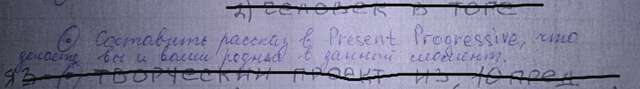 2) ЧЕЛОВЕК В ТОГЕ
6) Составить рассказ в Present Progressive, что
делаете вы и ваши родные в данный момент.
ЯЗ ТВОРЧЕСКИЙ ПРОЕКТ ИЗ 10 ПРЕД